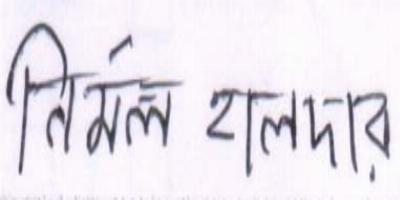 নির্মল হালদার